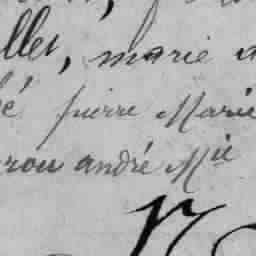 llet, marie
é pierre Marie
rou andré Mie
N